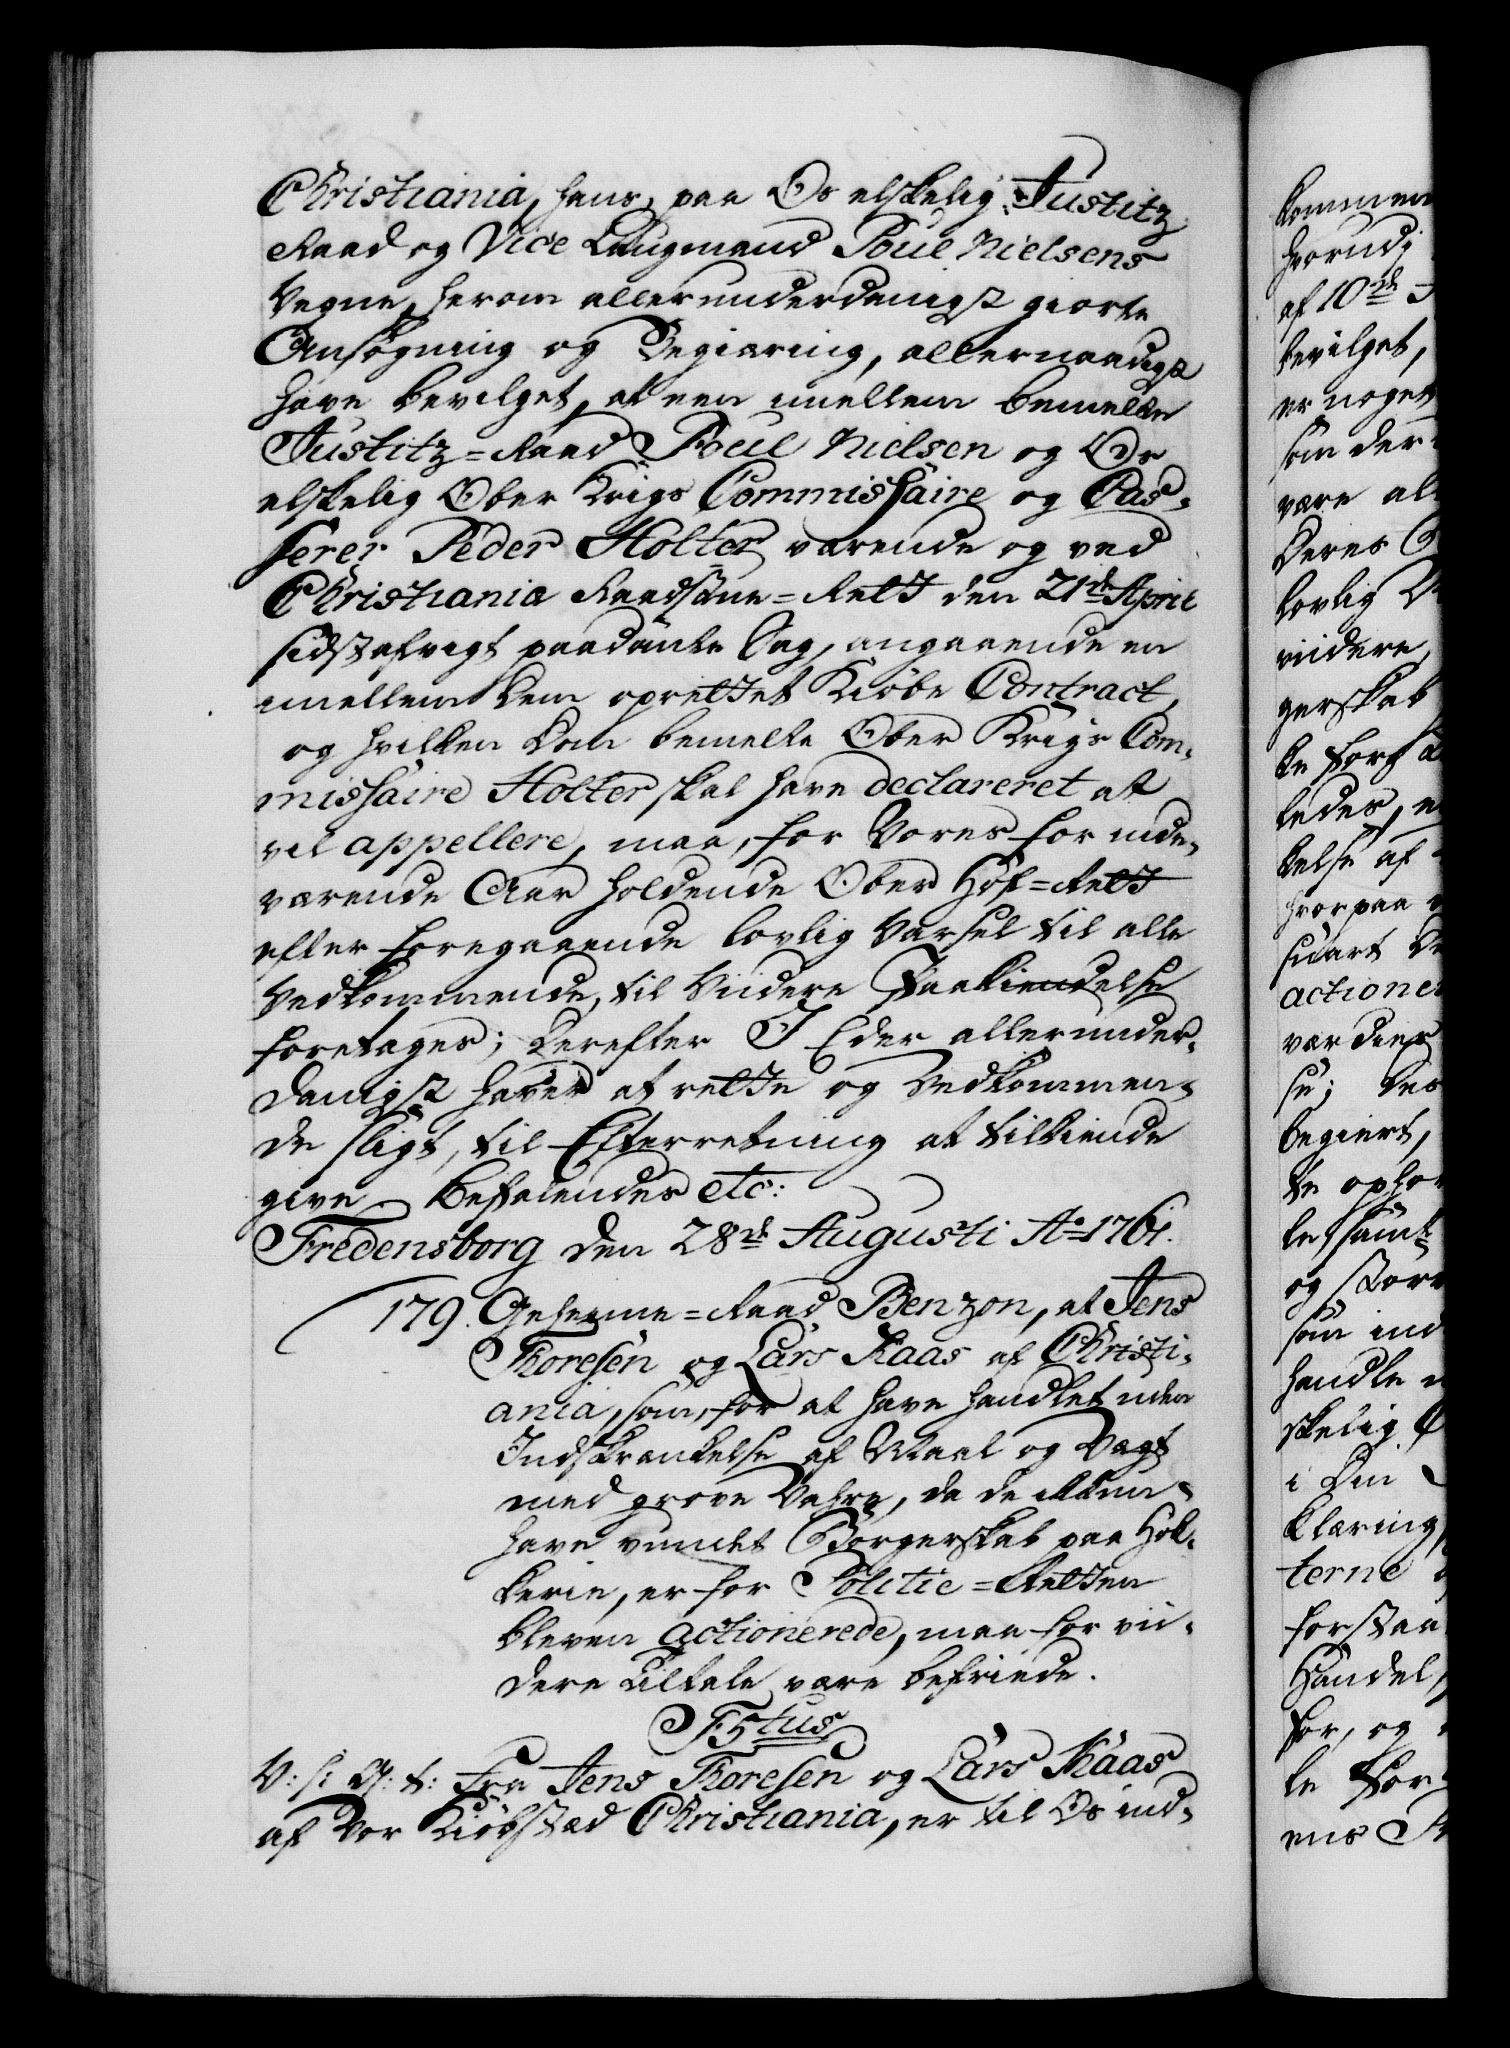 Christiania, hans, paa Os elskelig Justitz
Raad og Vice Laugmand Poul Nielsens
Vegne, herom allerunderdanigst giorte
Ansøgning og Begiæring, allernaadigst
have bevilget, at een imellem bemelte
Justitz=Raad Poul Nielsen og Os
elskelig Ober Krigs Commissaire og Cas-
serer Peder Holter værende og ved
Christiania Raadstue=Rett den 21de April
sidstafvigt paadømte Sag, angaaende en
imellem Dem oprettet Kiøbe Contract,
og hvilken Dom bemelte Ober Krigs Com-
missaire Holter skal have declareret at
vil appellere, maa, for Vores for inde-
værende Aar holdende Ober Hof=Rett
efter foregaaende lovlig Varsel til alle
Vedkommende, til Viidere Paakiendelse
foretages; Derefter I Eder allerunder-
danigst haver at rette og Vedkommen-
de sligt, til Efterretning at tilkiende
give Befalendes etc:
Fredensborg den 28de Augusti Ao 1761.
179. Geheime=Raad Benzon, at Jens
Thoresen og Lars Kaas af Christi-
ania, som, for at have handlet uden
Indskrænkelse af Maal og Vægt
med grove Vahre, da de ikkun
have vundet Borgerskab paa Høk-
kerie, er for Politie=Retten
bleven actionerede, maa for vii-
dere Tiltale være befriede.
F5tus
V: s: G: t: Fra Jens Thoresen og Lars Kaas
af Vor Kiøbstæd Christiania, er til Os ind-
kommen
hvorudi
af 10de
bevilget,
er noget
som der
være al
Deres
lovlig
viidere
gerskab
de for
ledes,
kelse af
hvorpaa
snart
actione
var dier
se; Des
begiert,
te opho
le samt
og stør
som ind
handle
skelig
i Din
klæring,
terne
forstaa
Handel,
for, og
le for
ens